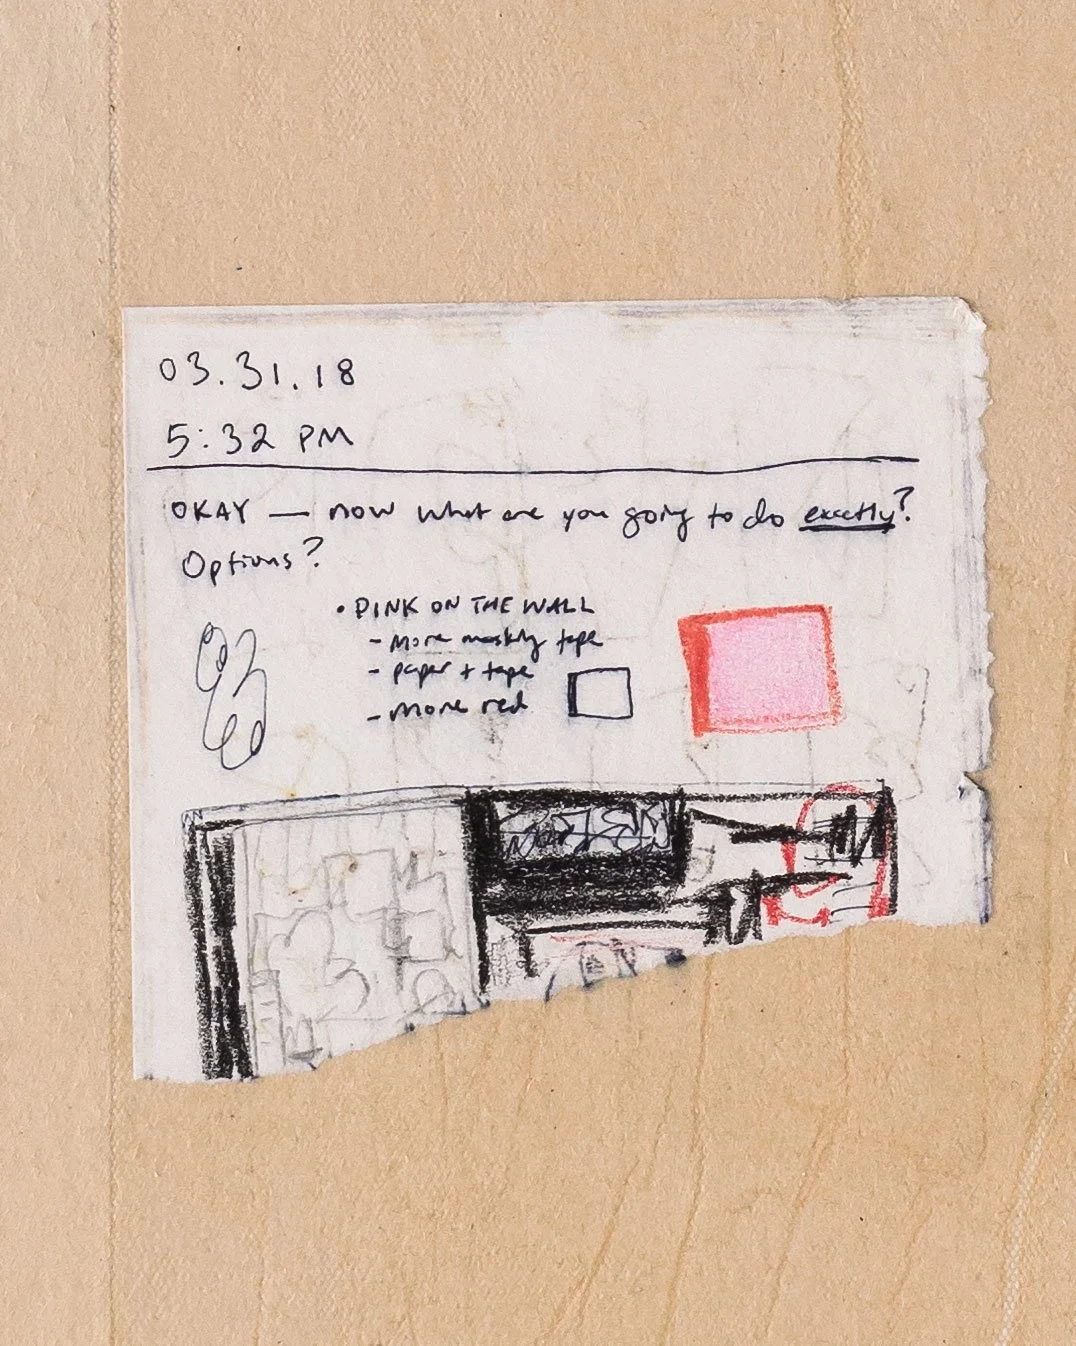 03.31.18
5:32 PM
OKAY — now what are you going to do exactly?
Options?
• PINK ON THE WALL
- More masking tape
- paper + tape
- More red